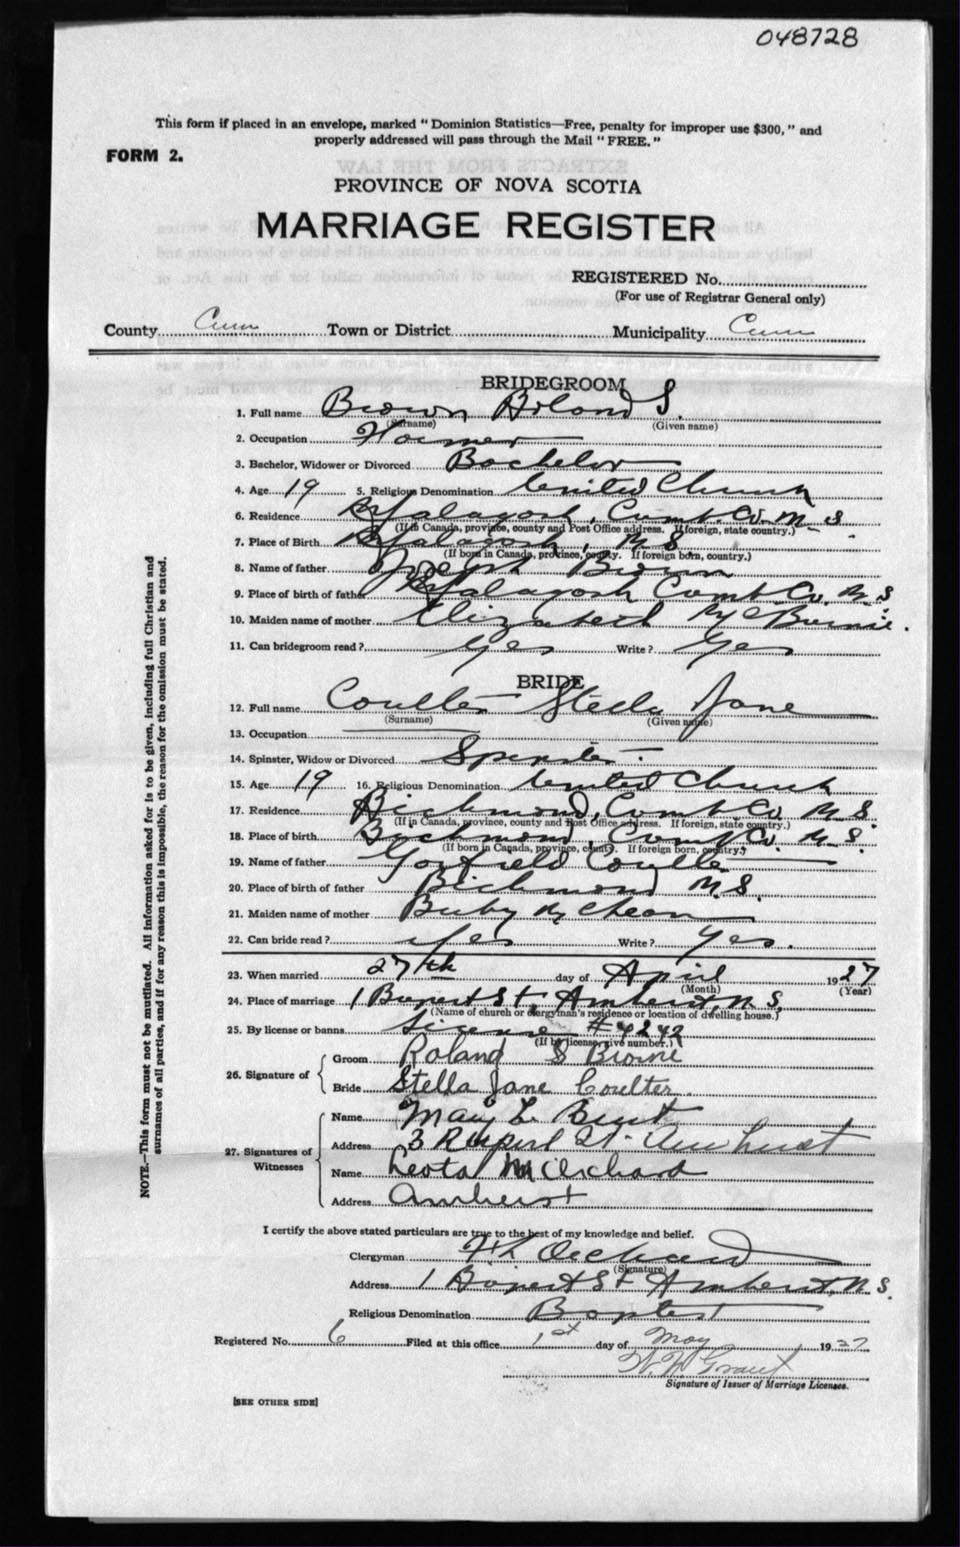 048728
This form if placed in an envelope, marked "Dominion Statistics—Free, penalty for improper use $300," and
properly addressed will pass through the Mail "FREE."
FORM 2.
PROVINCE OF NOVA SCOTIA
MARRIAGE REGISTER
REGISTERED No.
(For use of Registrar General only)
County Cum Town or District Municipality Cum
BRIDEGROOM
1. Full name Brown Roland S.
(Surname) (Given name)
2. Occupation Farmer
3. Bachelor, Widower or Divorced Bachelor
4. Age 19 5. Religious Denomination United Church
6. Residence Malagash, Cumb. Co. N.S.
(If in Canada, province, county and Post Office address. If foreign, state country.)
7. Place of Birth Malagash, N.S.
(If born in Canada, province, county. If foreign born, country.)
8. Name of father Joseph Brown
9. Place of birth of father Malagash Cumb Co. N.S.
10. Maiden name of mother Elizabeth McBurnie.
11. Can bridegroom read? Yes Write? Yes
BRIDE
12. Full name Coulter Stella Jane
(Surname) (Given name)
13. Occupation
14. Spinster, Widow or Divorced Spinster
15. Age 19 16. Religious Denomination United Church
17. Residence Richmond, Cumb Co. N.S.
(If in Canada, province, county and Post Office address. If foreign, state country.)
18. Place of birth Richmond, Cumb Co. N.S.
(If born in Canada, province, county. If foreign born, country.)
19. Name of father Garfield Coulter
20. Place of birth of father Richmond N.S.
21. Maiden name of mother Ruby
22. Can bride read? Yes Write? Yes.
23. When married 27th day of April 1927
(Month) (Year)
24. Place of marriage 1 Rupert St. Amherst, N.S.
(Name of church or clergyman's residence or location of dwelling house.)
25. By license or banns License #4242
(If by license, give number.)
26. Signature of Groom Roland S Browne
Bride Stella Jane Coulter
27. Signatures of Witnesses Name May L
Address 3 Rupert St. Amherst
Name Leota M Orchard
Address Amherst
I certify the above stated particulars are true to the best of my knowledge and belief.
Clergyman Orchard
(Signature)
Address 1 Rupert St Amherst, N.S.
Religious Denomination Baptist
Registered No. 6 Filed at this office 1st day of May 1927
Grant
Signature of Issuer of Marriage Licenses.
[SEE OTHER SIDE]
NOTE.—This form must not be mutilated. All information asked for is to be given, including full Christian and
surnames of all parties, and if for any reason this is impossible, the reason for the omission must be stated.